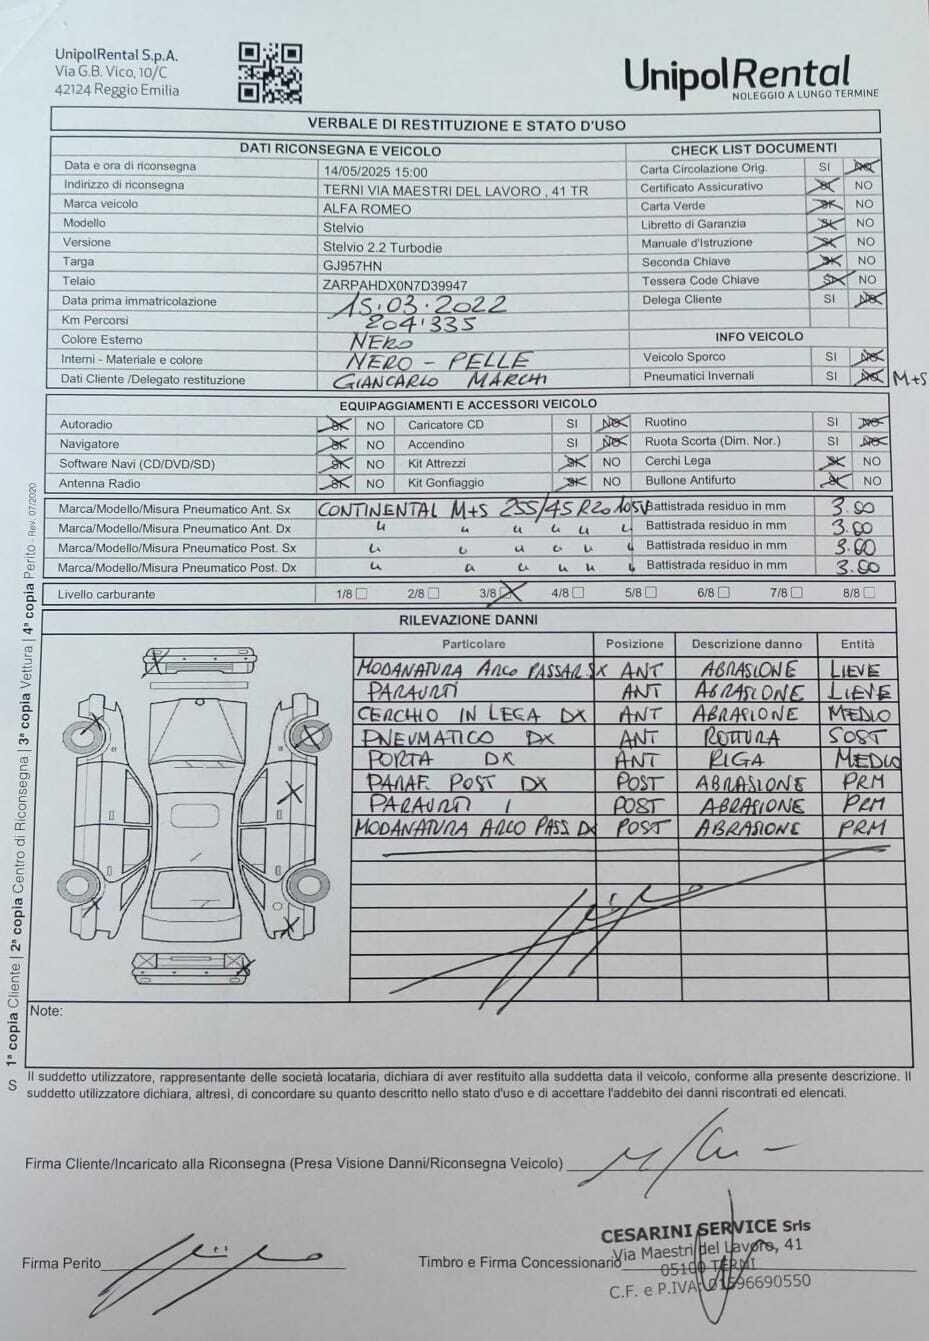 UnipolRental S.p.A.
Via G.B. Vico, 10/C
42124 Reggio Emilia
UnipolRental
NOLEGGIO A LUNGO TERMINE
VERBALE DI RESTITUZIONE E STATO D'USO
DATI RICONSEGNA E VEICOLO
Data e ora di riconsegna 14/05/2025 15:00
Indirizzo di riconsegna TERNI VIA MAESTRI DEL LAVORO , 41 TR
Marca veicolo ALFA ROMEO
Modello Stelvio
Versione Stelvio 2.2 Turbodie
Targa GJ957HN
Telaio ZARPAHDX0N7D39947
Data prima immatricolazione 15.03.2022
Km Percorsi 204'335
Colore Esterno NERO
Interni - Materiale e colore NERO - PELLE
Dati Cliente /Delegato restituzione GIANCARLO MARCHI
CHECK LIST DOCUMENTI
Carta Circolazione Orig. SI NO
Certificato Assicurativo SI NO
Carta Verde SI NO
Libretto di Garanzia SI NO
Manuale d'Istruzione SI NO
Seconda Chiave SI NO
Tessera Code Chiave SI NO
Delega Cliente SI NO
INFO VEICOLO
Veicolo Sporco SI NO
Pneumatici Invernali SI NO M+S
EQUIPAGGIAMENTI E ACCESSORI VEICOLO
Autoradio SI NO Caricatore CD SI NO Ruotino SI NO
Navigatore SI NO Accendino SI NO Ruota Scorta (Dim. Nor.) SI NO
Software Navi (CD/DVD/SD) SI NO Kit Attrezzi SI NO Cerchi Lega SI NO
Antenna Radio SI NO Kit Gonfiaggio SI NO Bullone Antifurto SI NO
Marca/Modello/Misura Pneumatico Ant. Sx CONTINENTAL M+S 255/45 R20 105V Battistrada residuo in mm 3.00
Marca/Modello/Misura Pneumatico Ant. Dx " " " " " " Battistrada residuo in mm 3.00
Marca/Modello/Misura Pneumatico Post. Sx " " " " " " Battistrada residuo in mm 3.00
Marca/Modello/Misura Pneumatico Post. Dx " " " " " " Battistrada residuo in mm 3.00
Livello carburante 1/8 2/8 3/8 4/8 5/8 6/8 7/8 8/8
RILEVAZIONE DANNI
Particolare Posizione Descrizione danno Entità
MODANATURA ARCO PASSAR SX ANT ABRASIONE LIEVE
PARAURTI ANT ABRASIONE LIEVE
CERCHIO IN LEGA DX ANT ABRASIONE MEDIO
PNEUMATICO DX ANT ROTTURA SOST
PORTA DX ANT RIGA MEDIO
PARAF. POST DX POST ABRASIONE PRM
PARAURTI POST ABRASIONE PRM
MODANATURA ARCO PASS DX POST ABRASIONE PRM
Note:
Il suddetto utilizzatore, rappresentante delle società locataria, dichiara di aver restituito alla suddetta data il veicolo, conforme alla presente descrizione. Il
suddetto utilizzatore dichiara, altresì, di concordare su quanto descritto nello stato d'uso e di accettare l'addebito dei danni riscontrati ed elencati.
Firma Cliente/Incaricato alla Riconsegna (Presa Visione Danni/Riconsegna Veicolo)
Firma Perito
Timbro e Firma Concessionario
CESARINI SERVICE Srls
Via Maestri del Lavoro, 41
05100 TERNI
C.F. e P.IVA: 01596690550
1ª copia Cliente | 2ª copia Centro di Riconsegna | 3ª copia Vettura | 4ª copia Perito - Rev. 07/2020
S